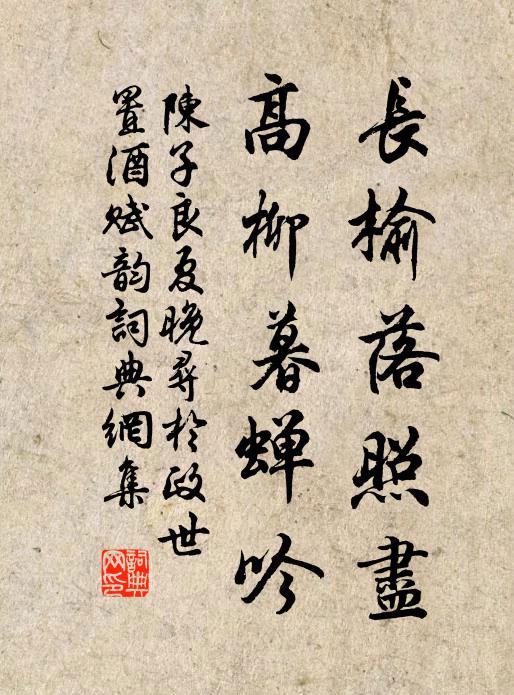 長榆落照盡
高柳暮蟬吟
陳子良夏晚尋於政世
置酒賦韵詞典網集
詞典网印